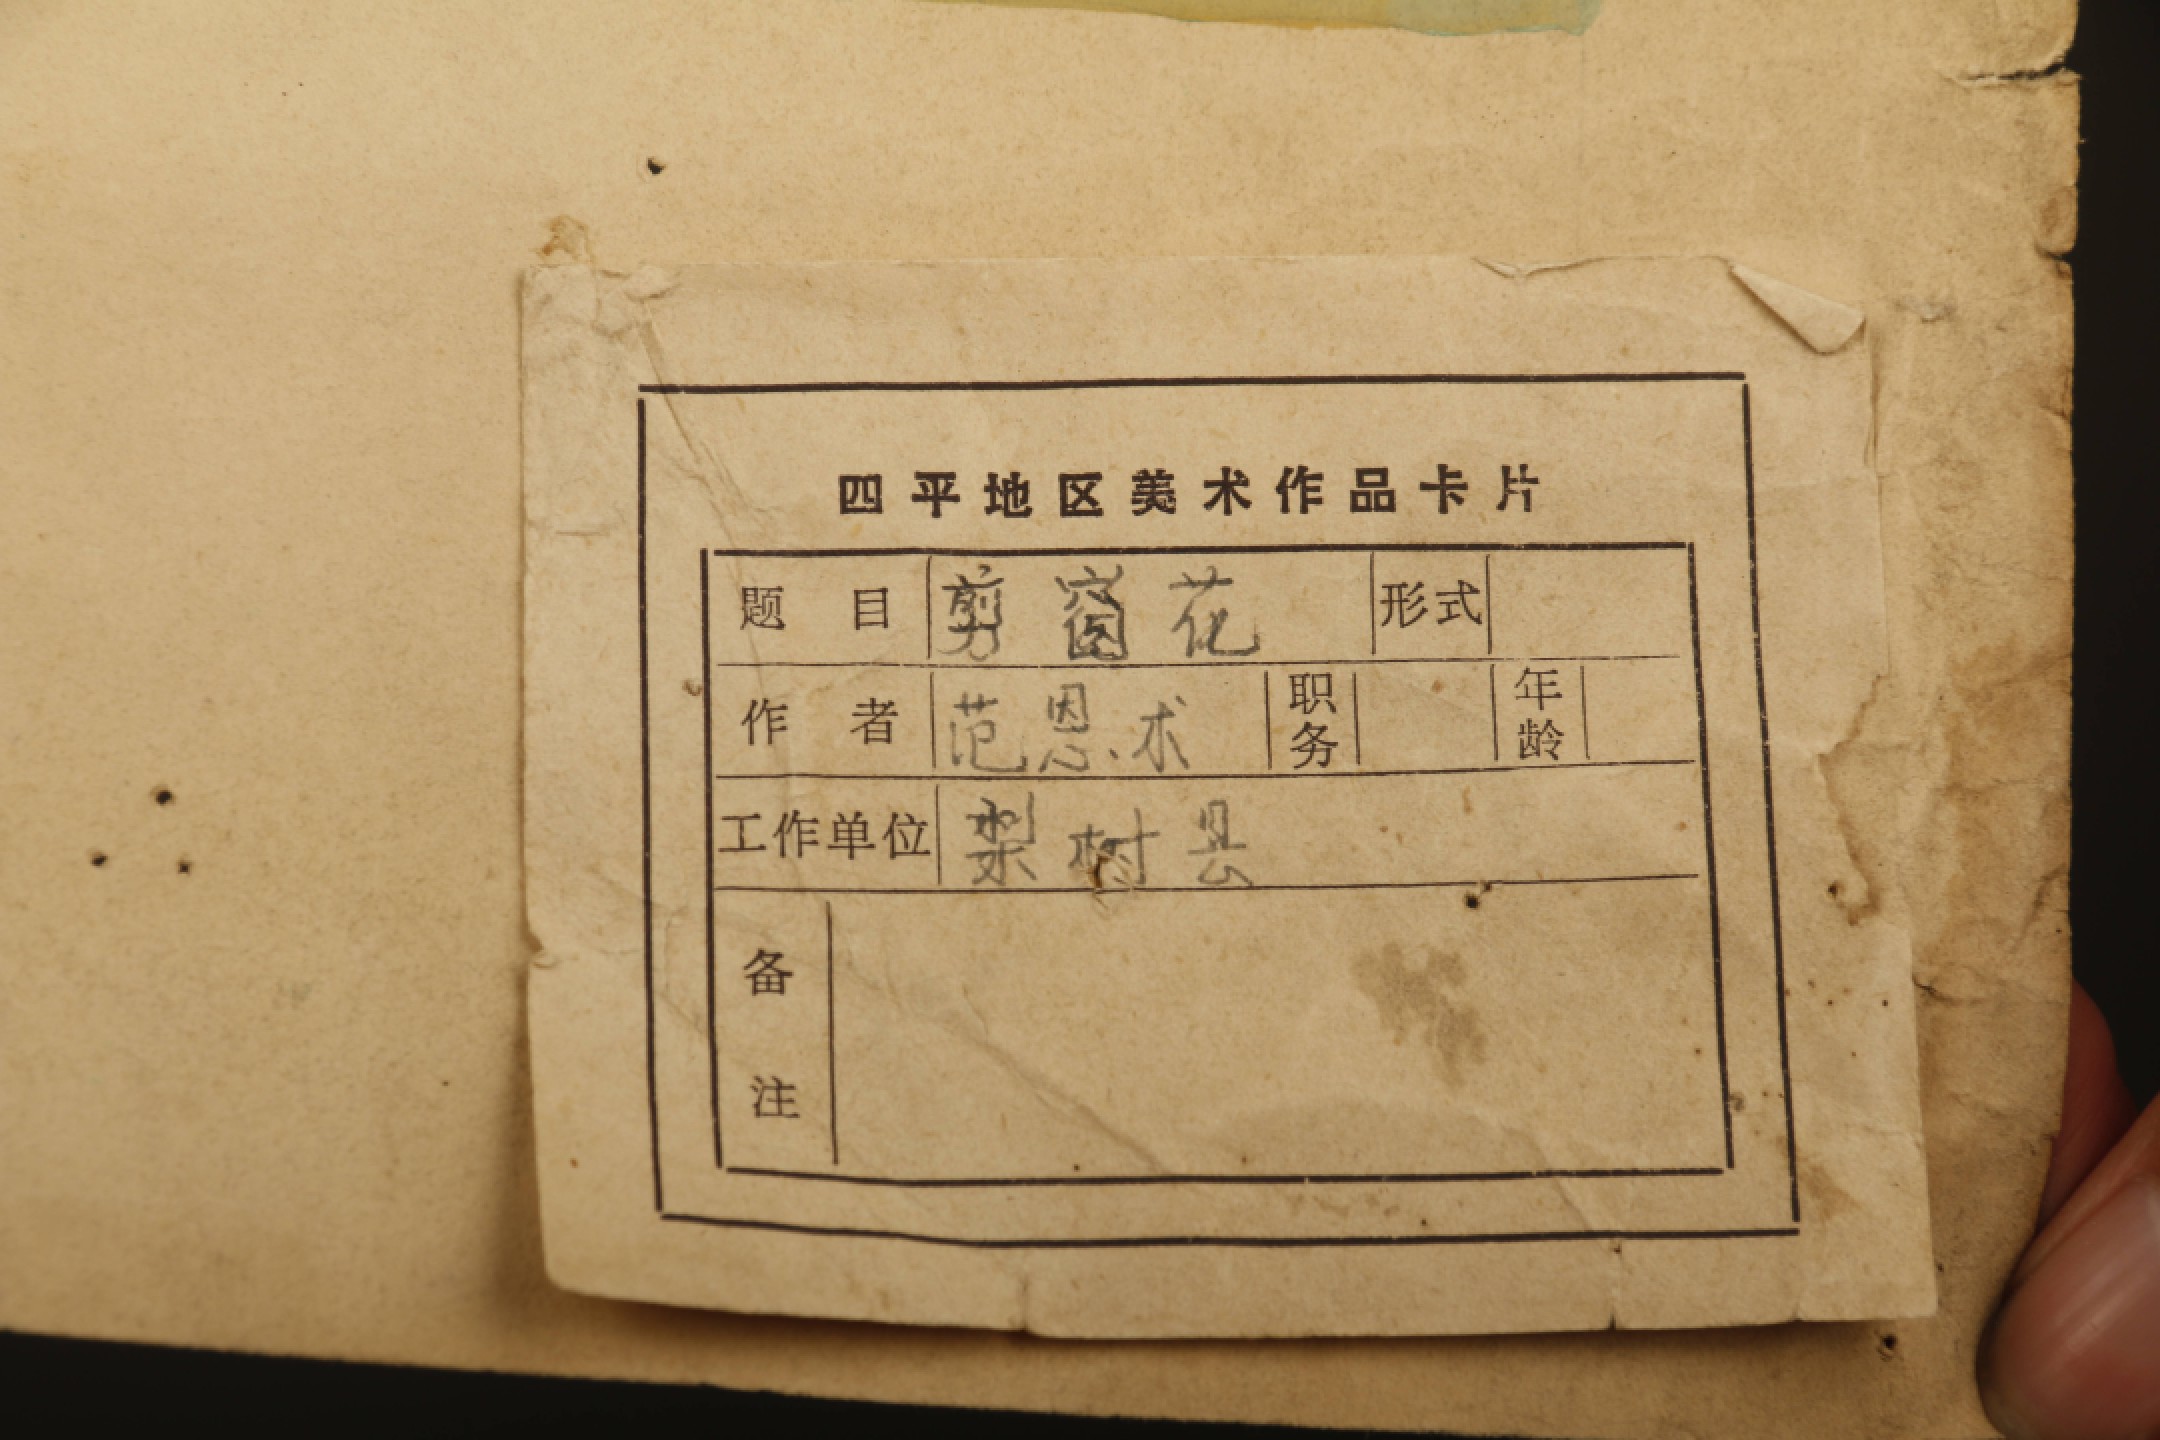 四平地区美术作品卡片
题目 剪窗花 形式
作者 范恩术 职务 年龄
工作单位 梨树县
备注